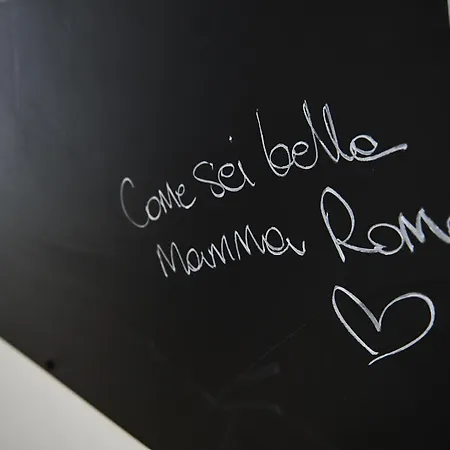 Come sei bella
mamma Roma